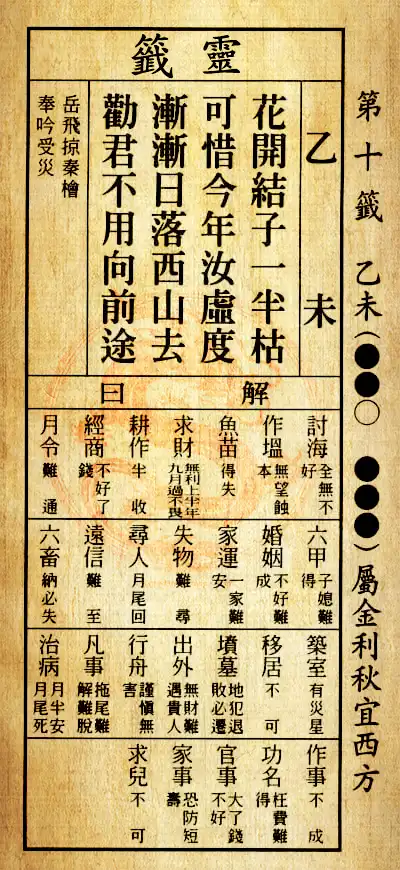 第十籤 乙未(●●○ ●●●)屬金利秋宜西方
靈籤
乙未
花開結子一半枯
可惜今年汝虛度
漸漸日落西山去
勸君不用向前途
岳飛掠秦檜
奉吟受災
解曰
討海 全無不好
作塭 無望蝕本
魚苗 得失
求財 無利上半年九月過不畏
耕作 半收
經商 不好了錢
月令 難通
六甲 子媳難得
婚姻 不好難成
家運 一家難安
失物 難尋
尋人 月尾回
遠信 難至
六畜 納必失
築室 有災星
移居 不可
墳墓 地犯退敗必遷
出外 無財難遇貴人
行舟 謹慎無害
凡事 拖尾難解難脫
治病 月半安月尾死
作事 不成
功名 枉費難得
官事 大了錢不好
家事 恐防短壽
求兒 不可